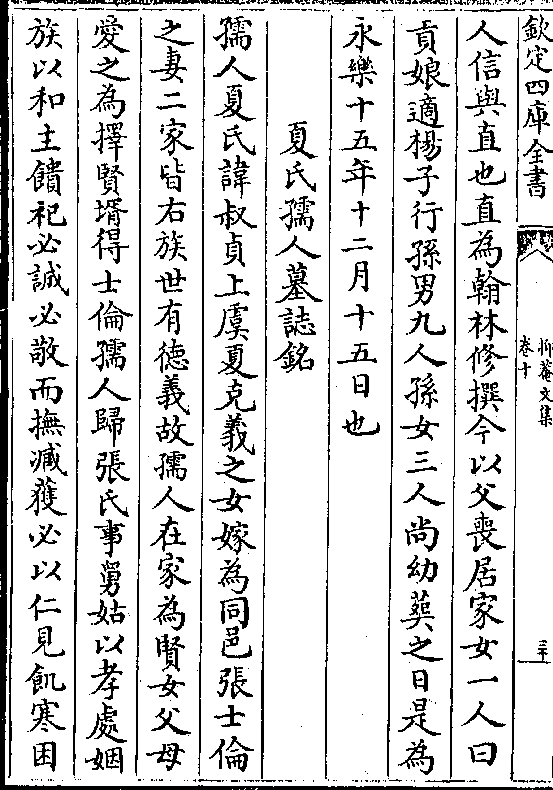 欽定四庫全書
抑菴文集
卷十
三十
人信與直也直為翰林修撰今以父喪居家女一人曰
貢娘適楊子行孫男九人孫女三人尚幼葬之日是為
永樂十五年十二月十五日也
夏氏孺人墓誌銘
孺人夏氏諱叔貞上虞夏克義之女嫁為同邑張士倫
之妻二家皆右族世有徳義故孺人在家為賢女父母
愛之為擇賢壻得士倫孺人歸張氏事舅姑以孝處姻
族以和主饋祀必誠必敬而撫臧獲必以仁見飢寒困